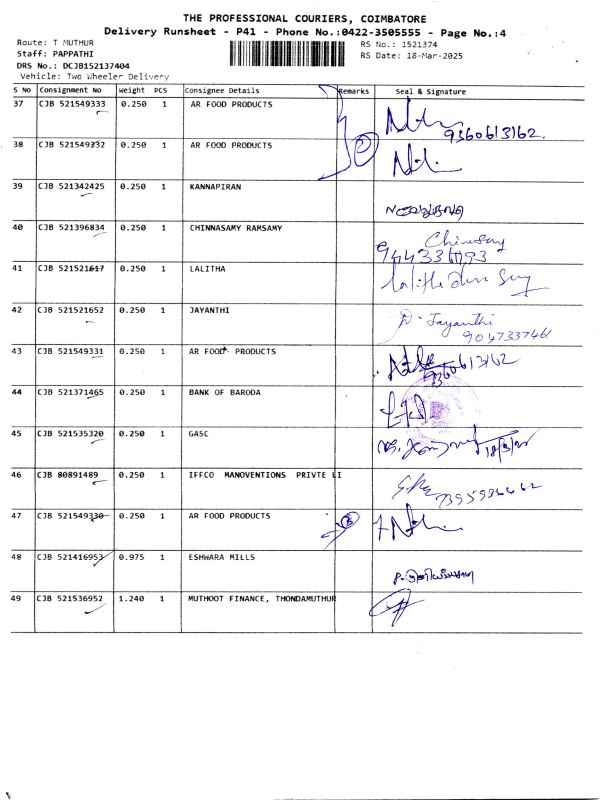 THE PROFESSIONAL COURIERS, COIMBATORE
Delivery Runsheet - P41 - Phone No.:0422-3505555 - Page No.:4
Route: T MUTHUR
RS No.: 1521374
Staff: PAPPATHI
RS Date: 18-Mar-2025
DRS No.: DCJB152137404
Vehicle: Two Wheeler Delivery
S No Consignment No Weight PCS Consignee Details Remarks Seal & Signature
37 CJB 521549333 0.250 1 AR FOOD PRODUCTS
9360613162.
38 CJB 521549332 0.250 1 AR FOOD PRODUCTS
39 CJB 521342425 0.250 1 KANNAPIRAN
40 CJB 521396834 0.250 1 CHINNASAMY RAMSAMY Chinnsamy
41 CJB 521521617 0.250 1 LALITHA
42 CJB 521521652 0.250 1 JAYANTHI Jayanthi
9047337461
43 CJB 521549331 0.250 1 AR FOOD PRODUCTS 9360613162
44 CJB 521371465 0.250 1 BANK OF BARODA
45 CJB 521535320 0.250 1 GASC
46 CJB 80891489 0.250 1 IFFCO MANOVENTIONS PRIVTE LI
47 CJB 521549330 0.250 1 AR FOOD PRODUCTS
48 CJB 521416953 0.975 1 ESHWARA MILLS
49 CJB 521536952 1.240 1 MUTHOOT FINANCE, THONDAMUTHUR